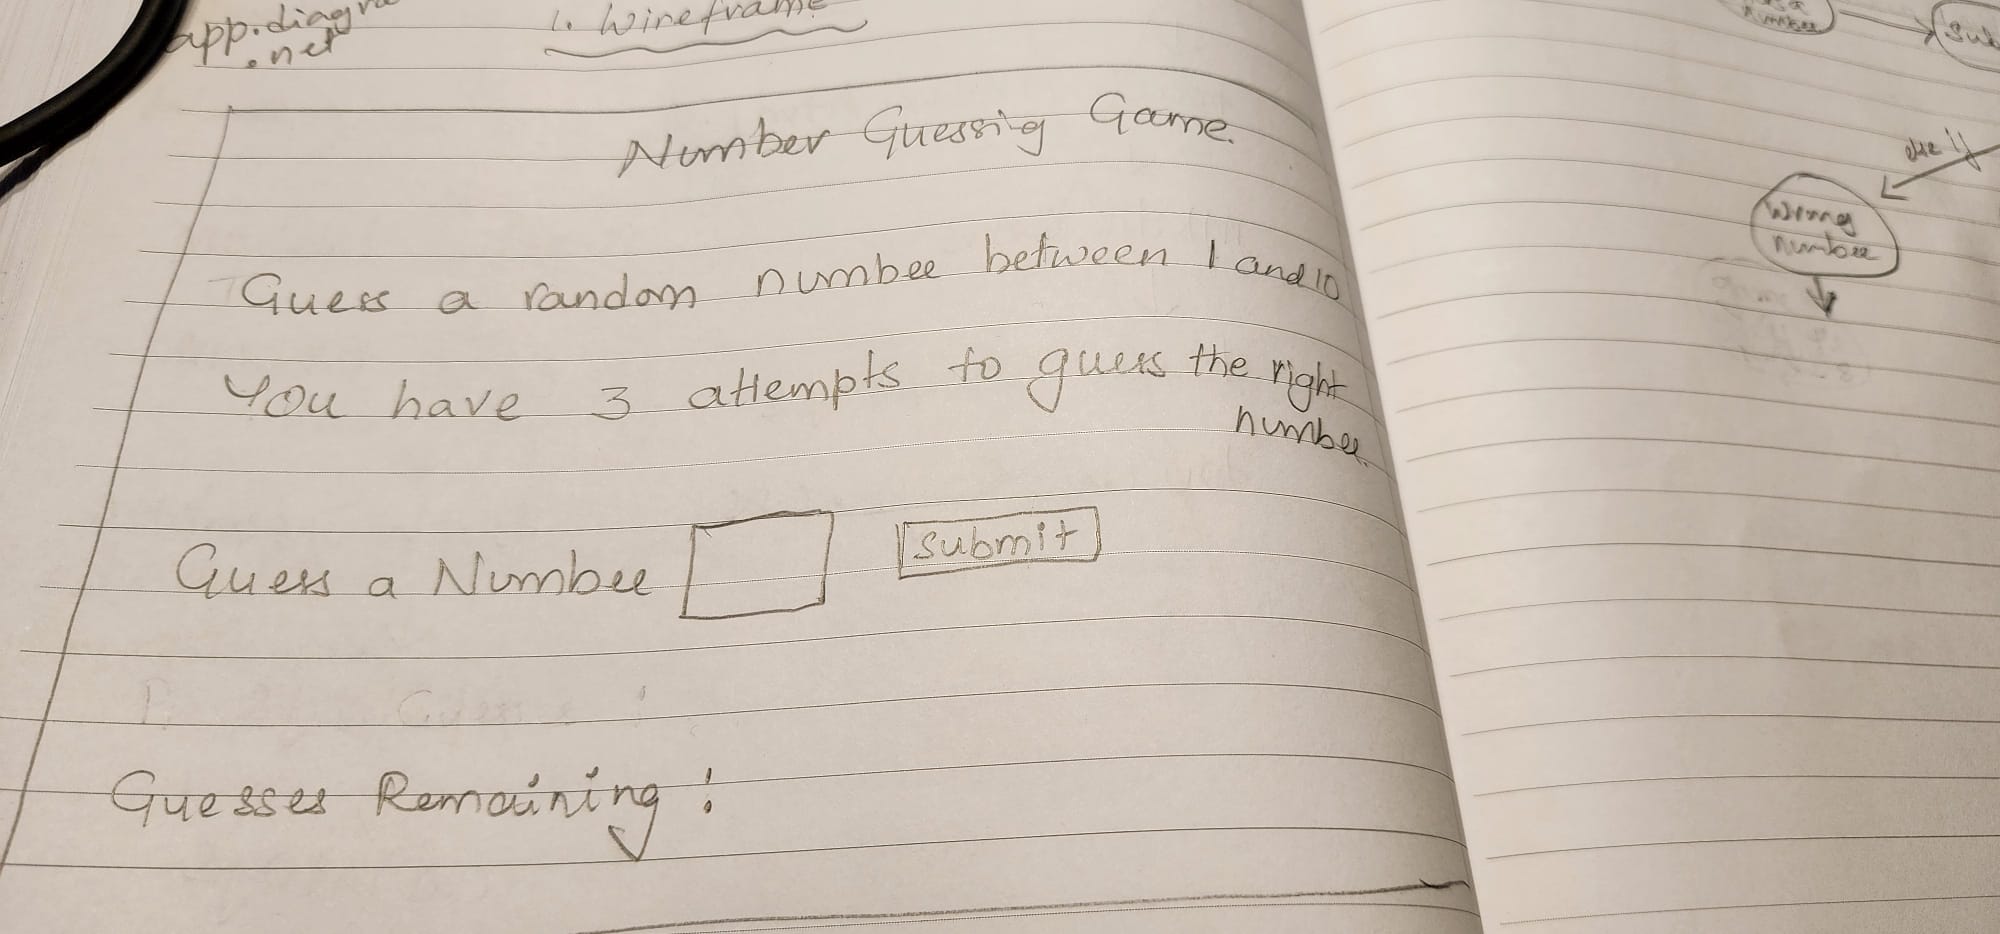 app.diagra
.net
1. Wireframe
Number Guessing Game.
Guess a random number between 1 and 10
You have 3 attempts to guess the right
number.
Guess a Number
Submit
Guesses Remaining :
number
Sub
else if
Wrong
number